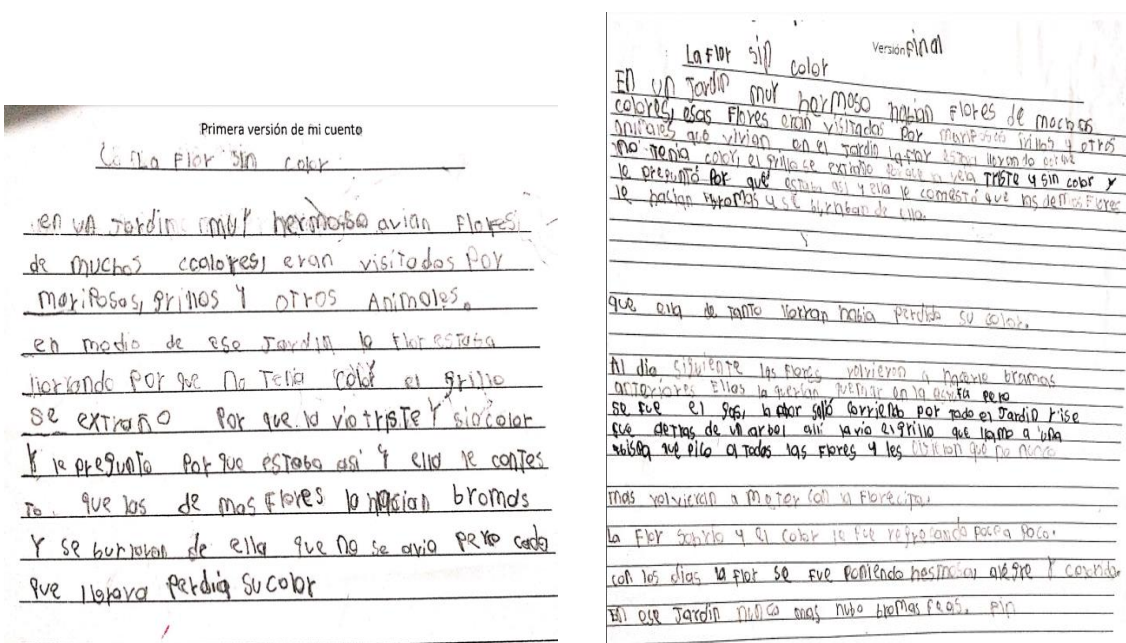 Primera versión de mi cuento
La Flor sin color
en un Jardin muy hermoso avian Flores
de muchos ccolores, eran visitados Por
mariPosas, grillos Y oTros Animales.
en medio de ese Jardin la Flor esTaba
llorando Por que no Tenia color el grillo
se exTraño Por que la vio trisTe Y sin color
Y le pregunTo Por que esTaba asi Y ella le contes
To. que las de mas Flores la hacian bromas
Y se burlavan de ella que no se avia pero cada
que llorava Perdia su color
Versión Final
La Flor sin color
En un Jardin muy hermoso habian Flores de muchos
colores, esas Flores eran visitadas Por mariposas grillos y otros
animales que vivian en el Jardin la Flor estava llorando
no Tenia color, el grillo se extraño verla TrisTe y sin color y
le preguntó Por qué estaba asi y ella le contestó que las demas Flores
le hacian bromas y se burlaban de ella.
Y
que ella de tanto llorar habia perdido su color.
Al dia siguiente las flores volvieron a hacerle bromas
anteriores Ellas la querian quemar en la pero
se fue el gas, la flor salió corriendo por todo el Jardin
fue detras de un arbol alli la vio el grillo que llamo a una
abispa que pico a Todas las Flores y les que no nunca
mas volvieran a meter con la Florecita.
la Flor y el color le fue poco a Poco.
con los dias la Flor se fue Poniendo hermosa, alegre Y
En ese Jardin nunca mas hubo bromas Feas. Fin